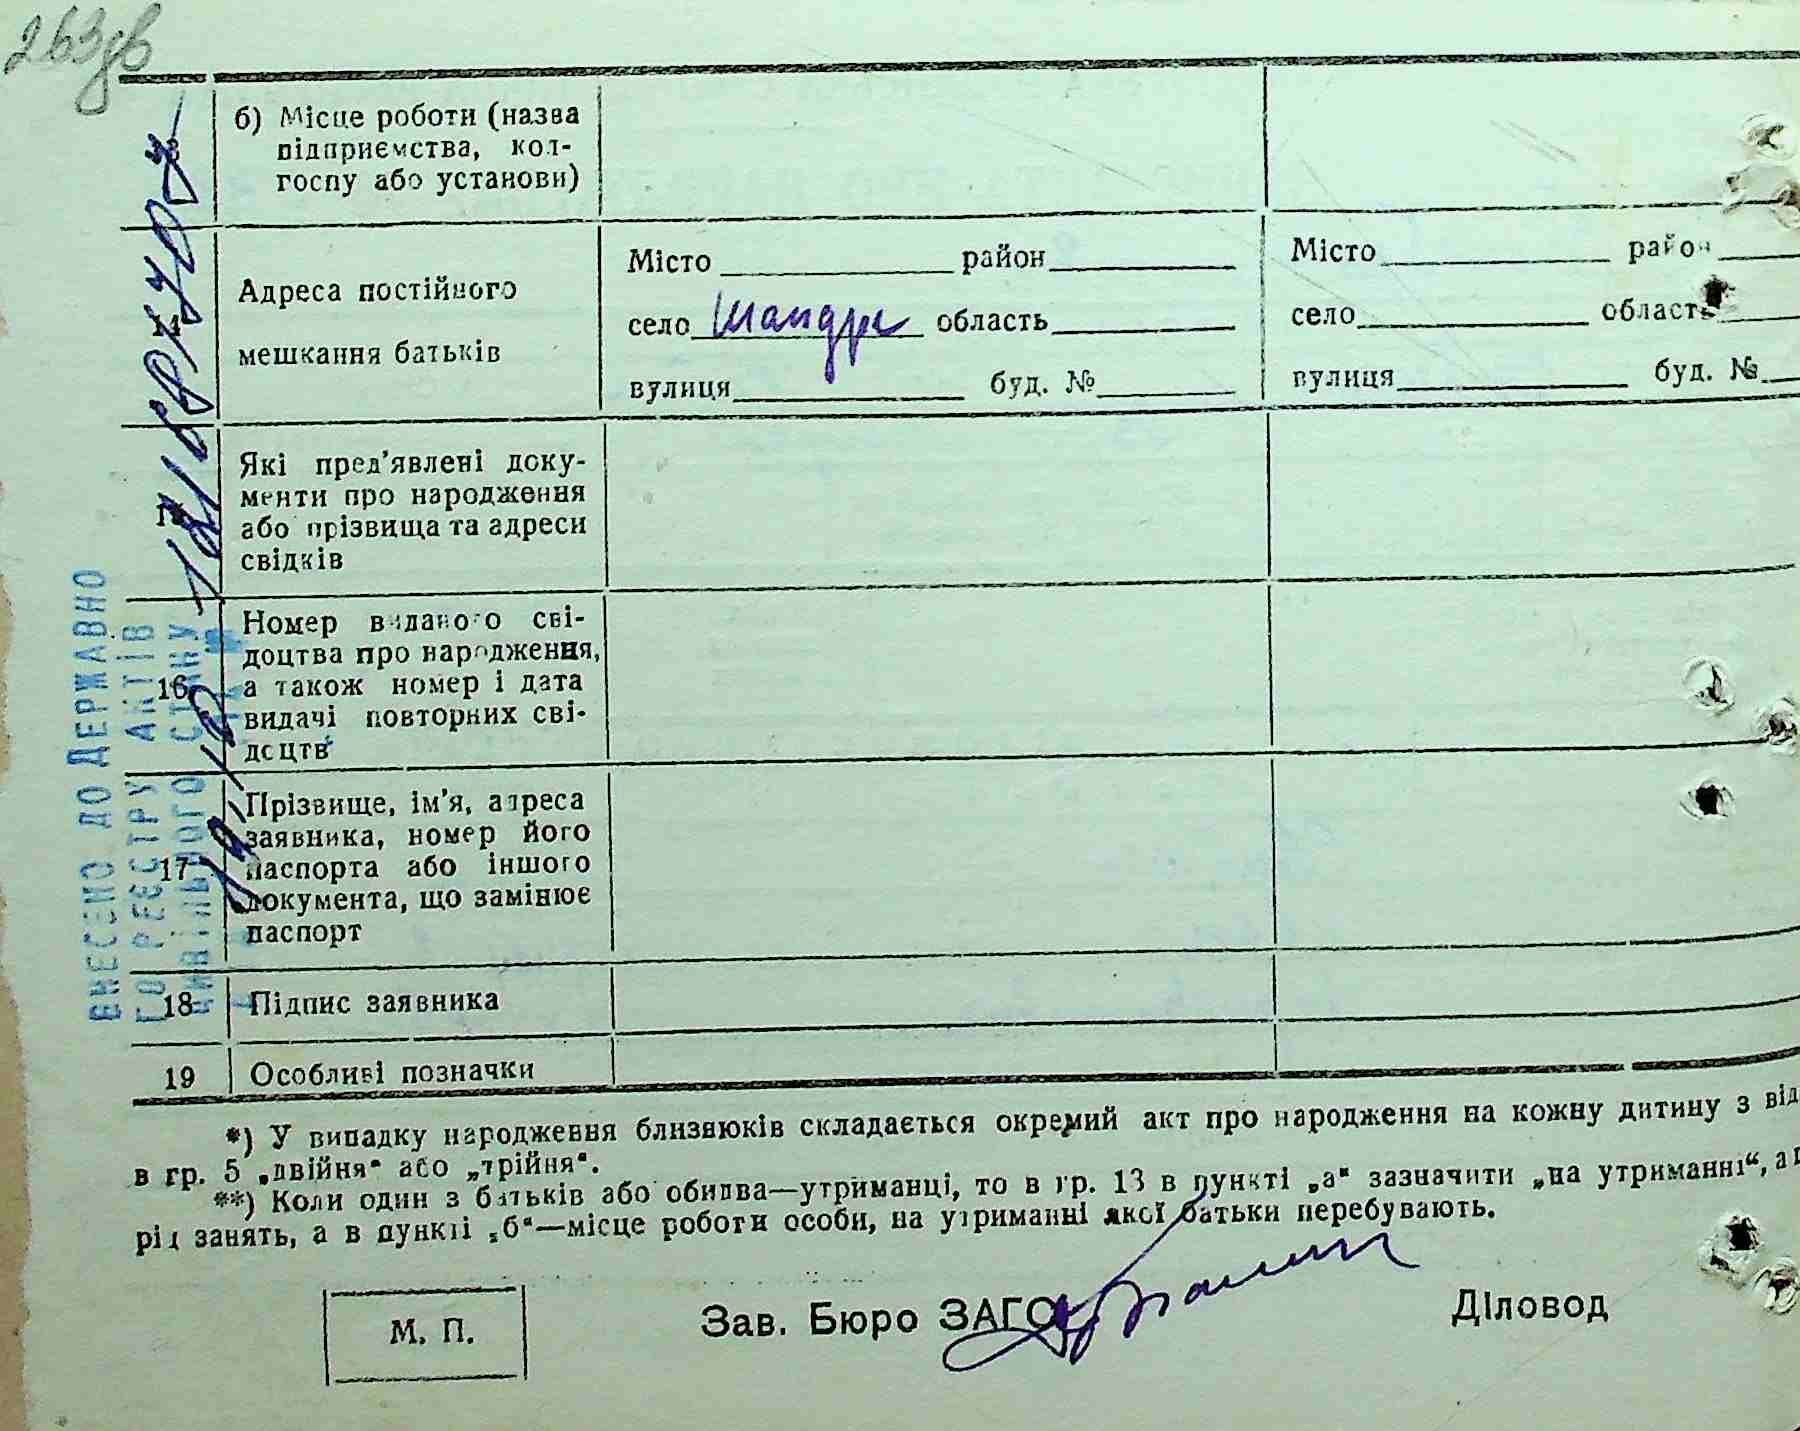 263зв
б) Місце роботи (назва
підприємства, кол-
госпу або установи)
Адреса постійного
мешкання батьків
Місто район
село Шандра область
вулиця буд. №
Місто район
село область
вулиця буд. №
Які пред’явлені доку-
менти про народження
або прізвища та адреси
свідків
16
Номер виданого сві-
доцтва про народження,
а також номер і дата
видачі повторних сві-
доцтв
17
Прізвище, ім’я, адреса
заявника, номер його
паспорта або іншого
документа, що замінює
паспорт
18 Підпис заявника
19 Особливі позначки
ВНЕСЕНО ДО ДЕРЖАВНО
ГО РЕЄСТРУ АКТІВ
ЦИВІЛЬНОГО СТАНУ
*) У випадку народження близнюків складається окремий акт про народження на кожну дитину з від
в гр. 5 „двійня“ або „трійня“.
**) Коли один з батьків або обидва—утриманці, то в гр. 13 в пункті „а“ зазначити „на утриманні“, а
рід занять, а в пункті „б“—місце роботи особи, на утриманні якої батьки перебувають.
М. П.
Зав. Бюро ЗАГС
Діловод